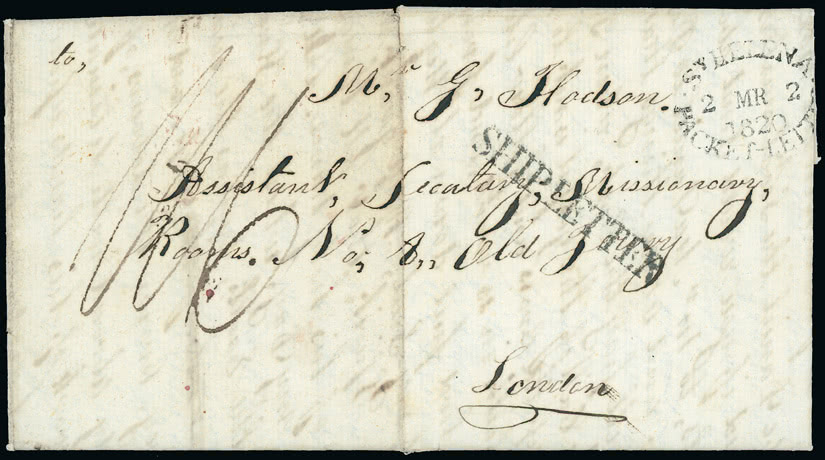 to,
Mr. G, Hodson.
Assistant, Secatary, Missionary,
Rooms. No, 4, Old Jewry
London
ST HELENA
2 MR 2
1820
PACKET-LETTER
SHIP LETTER